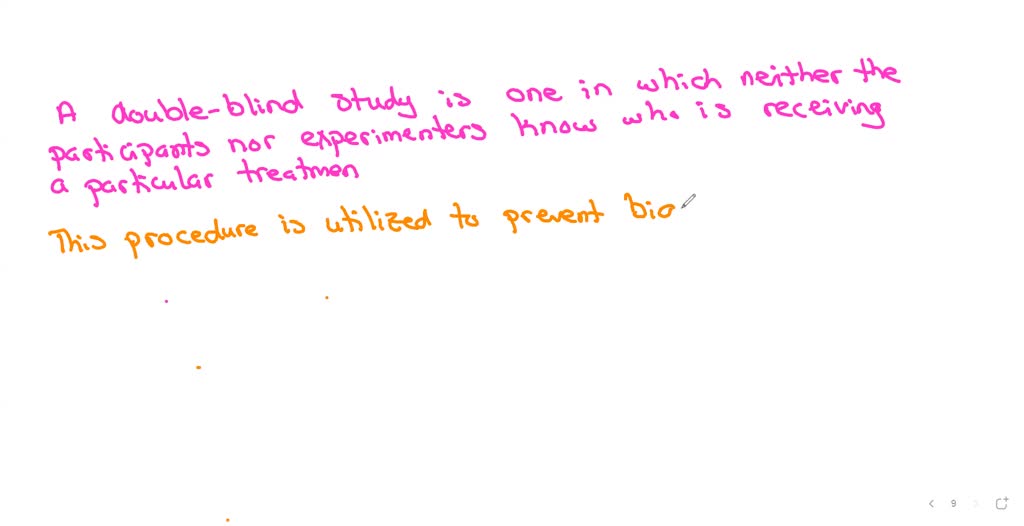 A double-blind study is one in which neither the
participants nor experimenters know who is receiving
a particular treatmen
This procedure is utilized to prevent bia
9